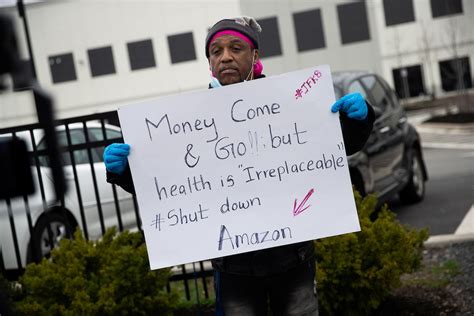 #JFK8
Money Come
& Go!!! but
health is "Irreplaceable"
#Shut down
Amazon